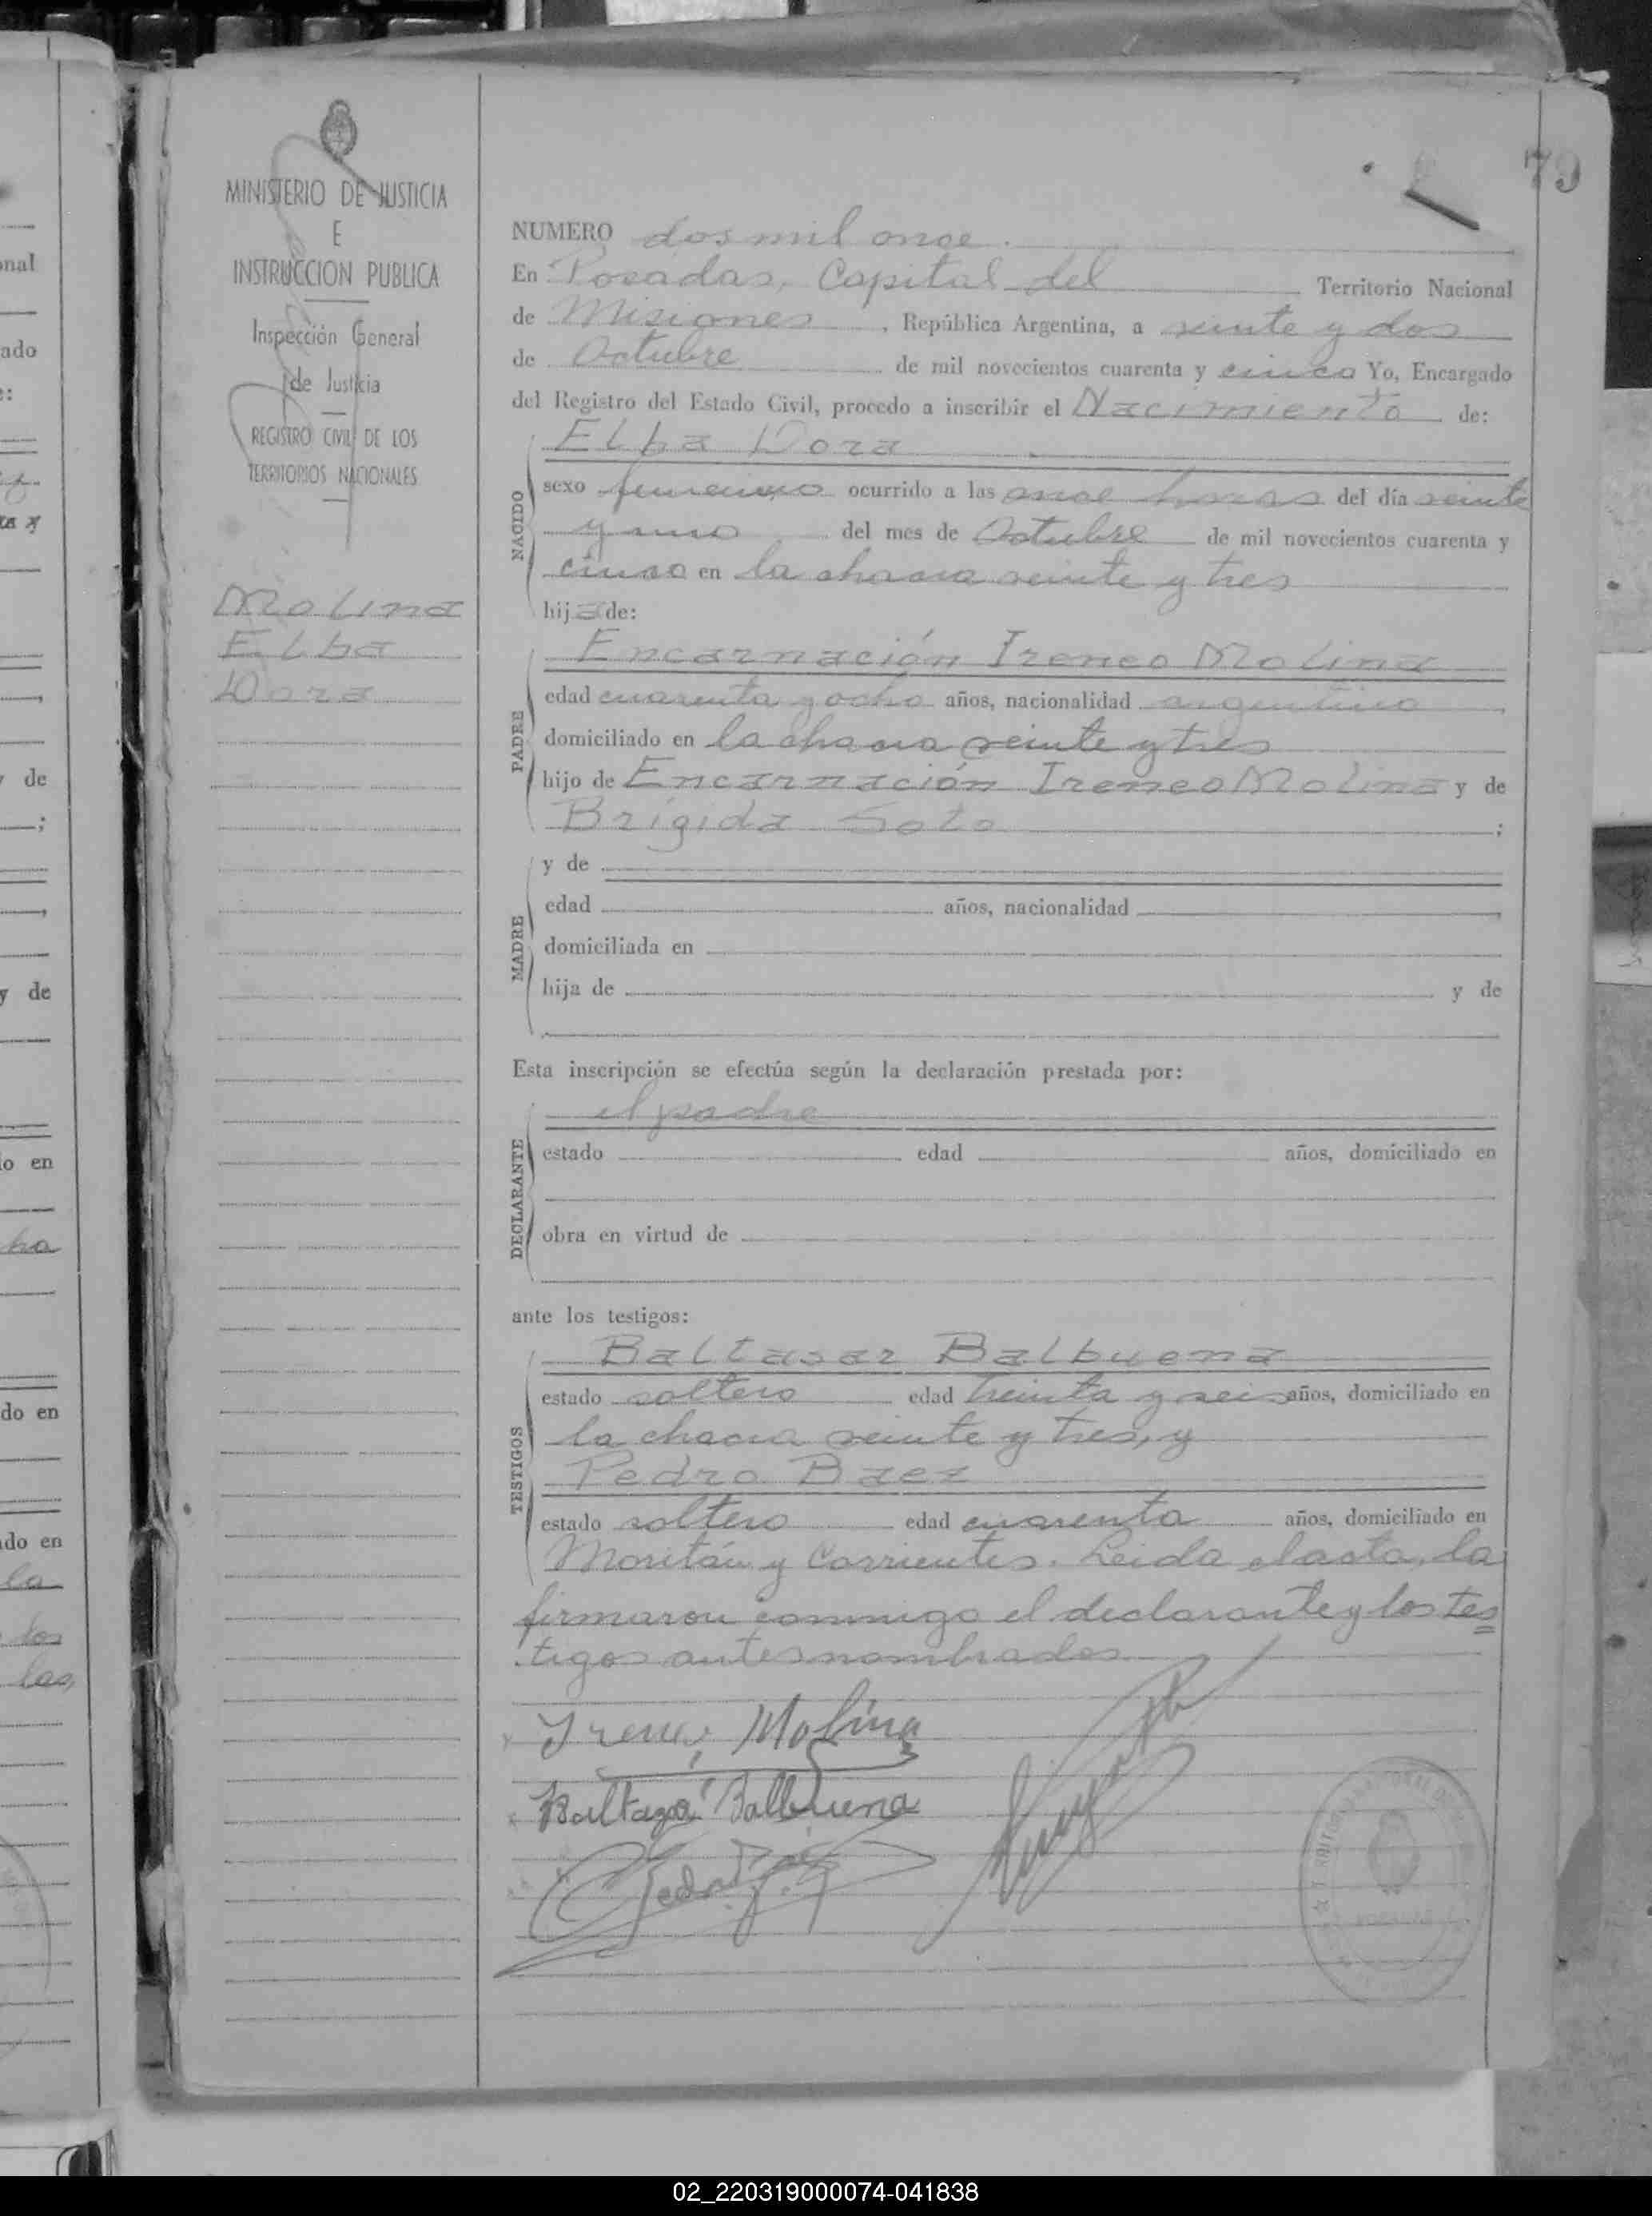 79
MINISTERIO DE JUSTICIA
E
INSTRUCCION PUBLICA
Inspección General
de Justicia
REGISTRO CIVIL DE LOS
TERRITORIOS NACIONALES
Molina
Elba
Dora
NUMERO dos mil once.
En Posadas, Capital del Territorio Nacional
de Misiones, República Argentina, a veinte y dos
de Octubre de mil novecientos cuarenta y cinco Yo, Encargado
del Registro del Estado Civil, procedo a inscribir el Nacimiento de:
Elba Dora
NACIDO
sexo femenino ocurrido a las once horas del día veinte
y uno del mes de Octubre de mil novecientos cuarenta y
cinco en la chacra veinte y tres
hija de:
Encarnación Ireneo Molina
PADRE
edad cuarenta y ocho años, nacionalidad argentino,
domiciliado en la chacra veinte y tres
hijo de Encarnación Ireneo Molina y de
Brígida Soto;
MADRE
y de
edad años, nacionalidad,
domiciliada en
hija de y de
Esta inscripción se efectúa según la declaración prestada por:
el padre
DECLARANTE
estado edad años, domiciliado en
obra en virtud de
ante los testigos:
Baltasar Balbuena
TESTIGOS
estado soltero edad treinta y seis años, domiciliado en
la chacra veinte y tres, y
Pedro Baez
estado soltero edad cuarenta años, domiciliado en
Moritán y Corrientes. Leida el acta, la
firmaron conmigo el declarante y los tes
tigos antes nombrados
Ireneo Molina
Baltazar Balbuena
Pedro
02_220319000074-041838